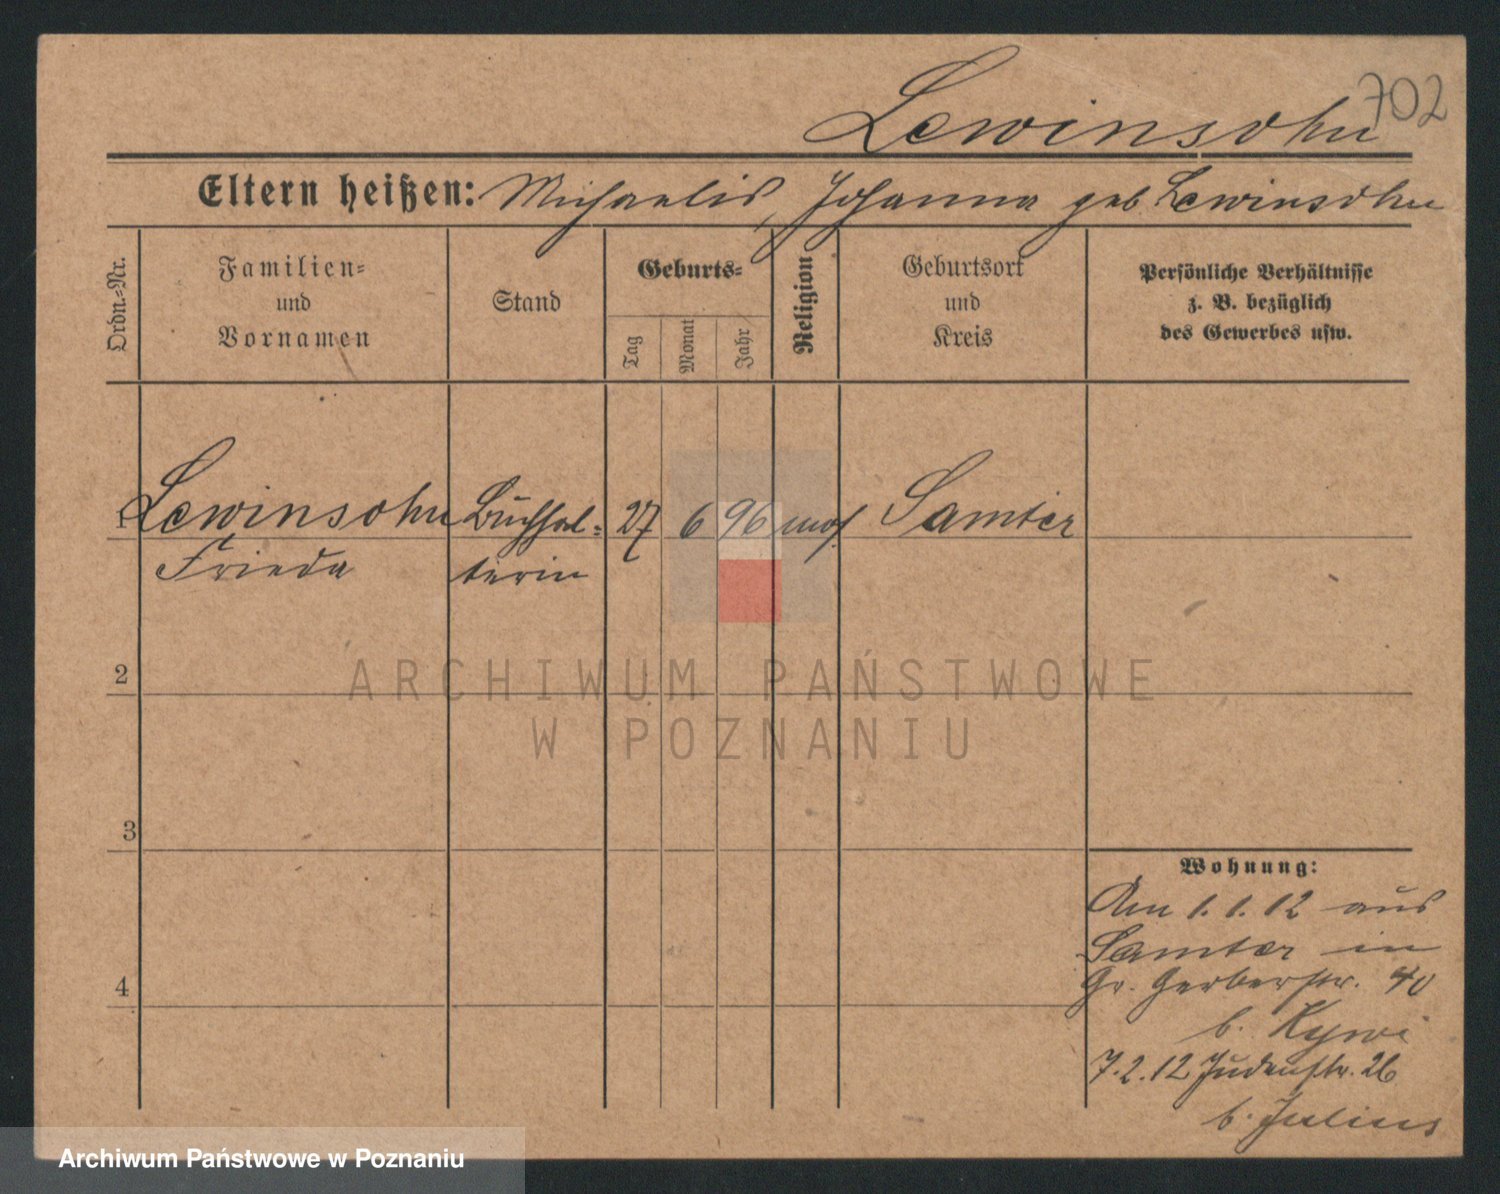 702
Lewinsohn
Eltern heißen: Michaelis, Johanna geb Lewinsohn
Ordn.-Nr.
Familien-
und
Vornamen
Stand
Geburts-
Tag
Monat
Jahr
Religion
Geburtsort
und
Kreis
Persönliche Verhältnisse
z. B. bezüglich
des Gewerbes usw.
1 Lewinsohn Buchhal- 27 6 96 mos. Samter
Frieda terin
2
ARCHIWUM PAŃSTWOWE
W POZNANIU
3
Wohnung:
Am 1. 1. 12 aus
Samter in
Gr. Gerberstr. 40
4
b.
7. 2. 12 Judenstr. 26
b. Julius
Archiwum Państwowe w Poznaniu